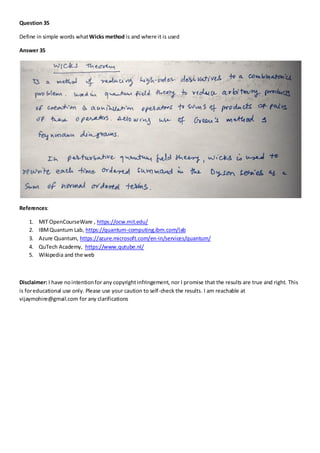 Question 35
Define in simple words what Wicks method is and where it is used
Answer 35
Wicks Theorem
Is a method of reducing high-order derivatives to a combinatorics
problem. Used in quantum field theory to reduce arbitrary products
of creation & annihilation operators to sums of products of pairs
of these operators. Allowing use of Green's method &
feynmann diagrams.
In perturbative quantum field theory, wicks is used to
rewrite each time ordered summand in the Dyson series as a
Sum of normal ordered terms.
References:
1. MIT OpenCourseWare , https://ocw.mit.edu/
2. IBM Quantum Lab, https://quantum-computing.ibm.com/lab
3. Azure Quantum, https://azure.microsoft.com/en-in/services/quantum/
4. QuTech Academy, https://www.qutube.nl/
5. Wikipedia and the web
Disclaimer: I have no intention for any copyright infringement, nor I promise that the results are true and right. This
is for educational use only. Please use your caution to self-check the results. I am reachable at
vijaymohire@gmail.com for any clarifications